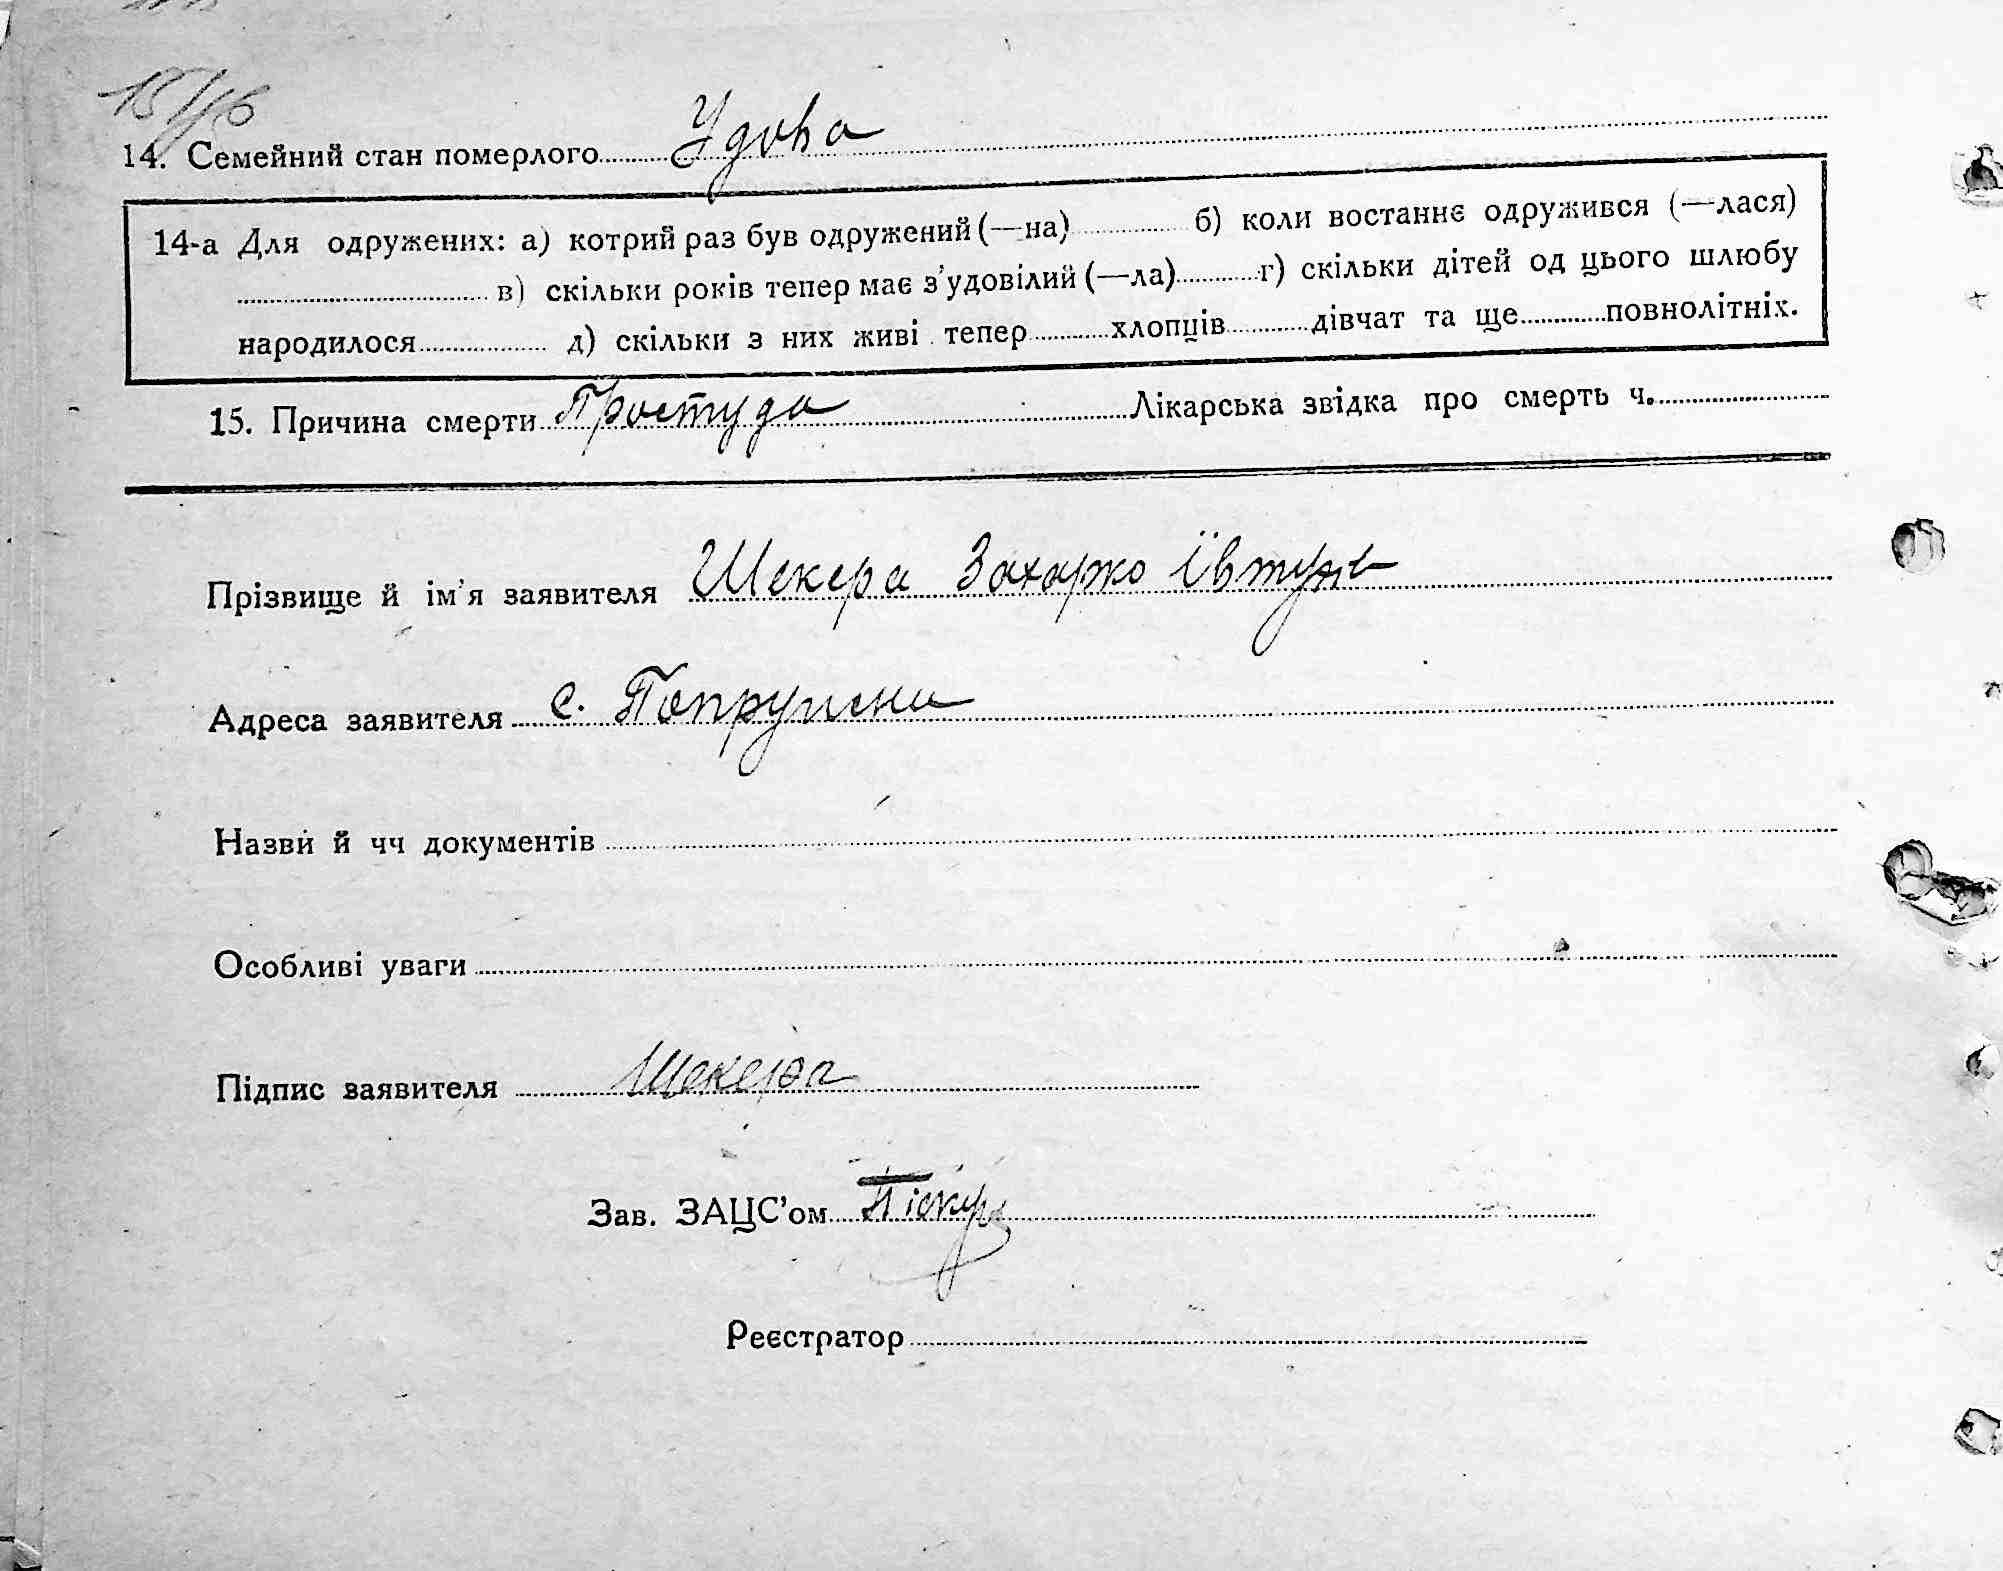 14. Семейний стан померлого Удова
14-а Для одружених: а) котрий раз був одружений (—на) б) коли востаннє одружився (—лася)
в) скільки років тепер має з’удовілий (—ла) г) скільки дітей од цього шлюбу
народилося д) скільки з них живі тепер хлопців дівчат та ще повнолітніх.
15. Причина смерти Простуда Лікарська звідка про смерть ч.
Прізвище й ім’я заявителя Шекера Захарко
Адреса заявителя с. Попружни
Назви й чч документів
Особливі уваги
Підпис заявителя Шекера
Зав. ЗАЦС’ом
Реєстратор